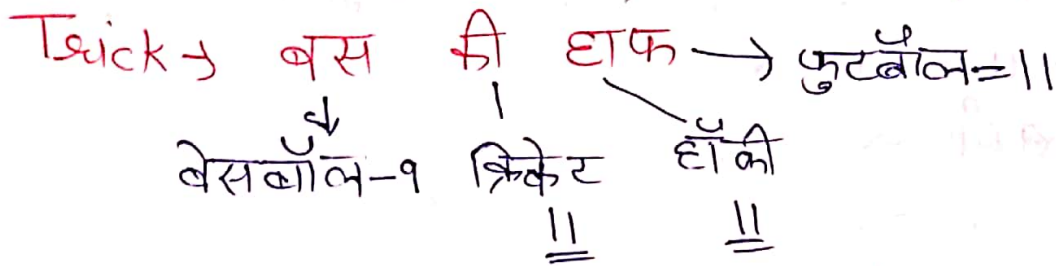 Trick → बस की हाफ → फुटबॉल = 11
बेसबॉल - 9 क्रिकेट हॉकी
11 11